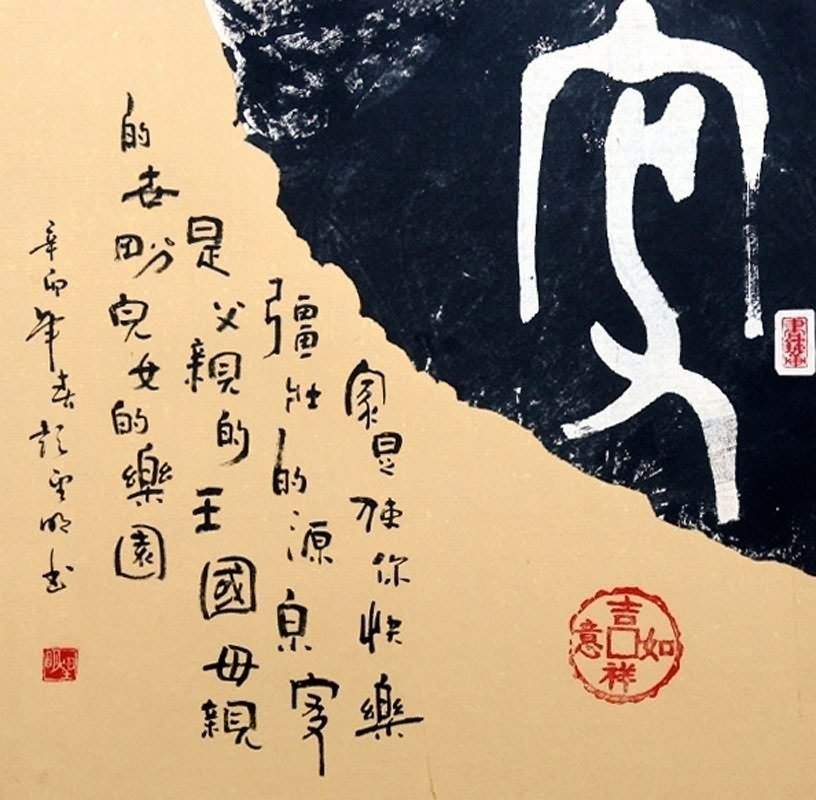 家
家是使你快樂
彊壯的源泉家
是父親的王國母親
的世畍兒女的樂園
辛卯年春彭明書
吉祥如意